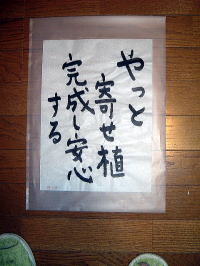 やっと
寄せ植
完成し安心
する